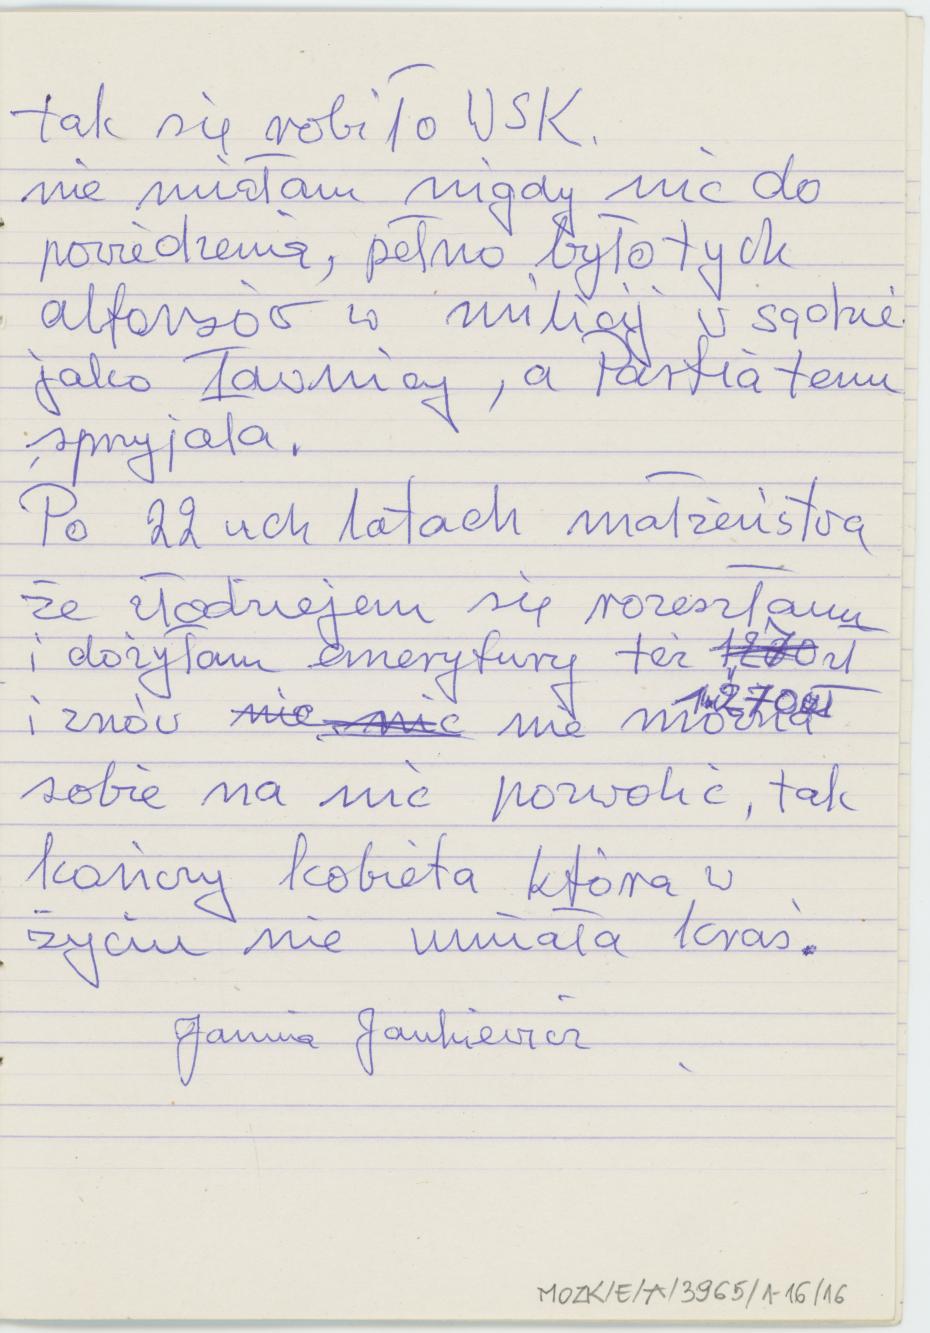 tak się robiło WSK.
nie miałam nigdy nic do
powiedzenia, pełno było tych
alfonsów w milicji w sądzie
jako Ławnicy, a Partia temu
sprzyjała.
Po 22 uch latach małżeństwa
że złodziejem się rozeszłam
i dożyłam emerytury też 1270 zł
1270 zł
i znów nic nic nie można
sobie na nic pozwolić, tak
kończy kobieta która w
życiu nie umiała kraść.
Janina Jankiewicz
MOZK/E/A/3965/1-16/16